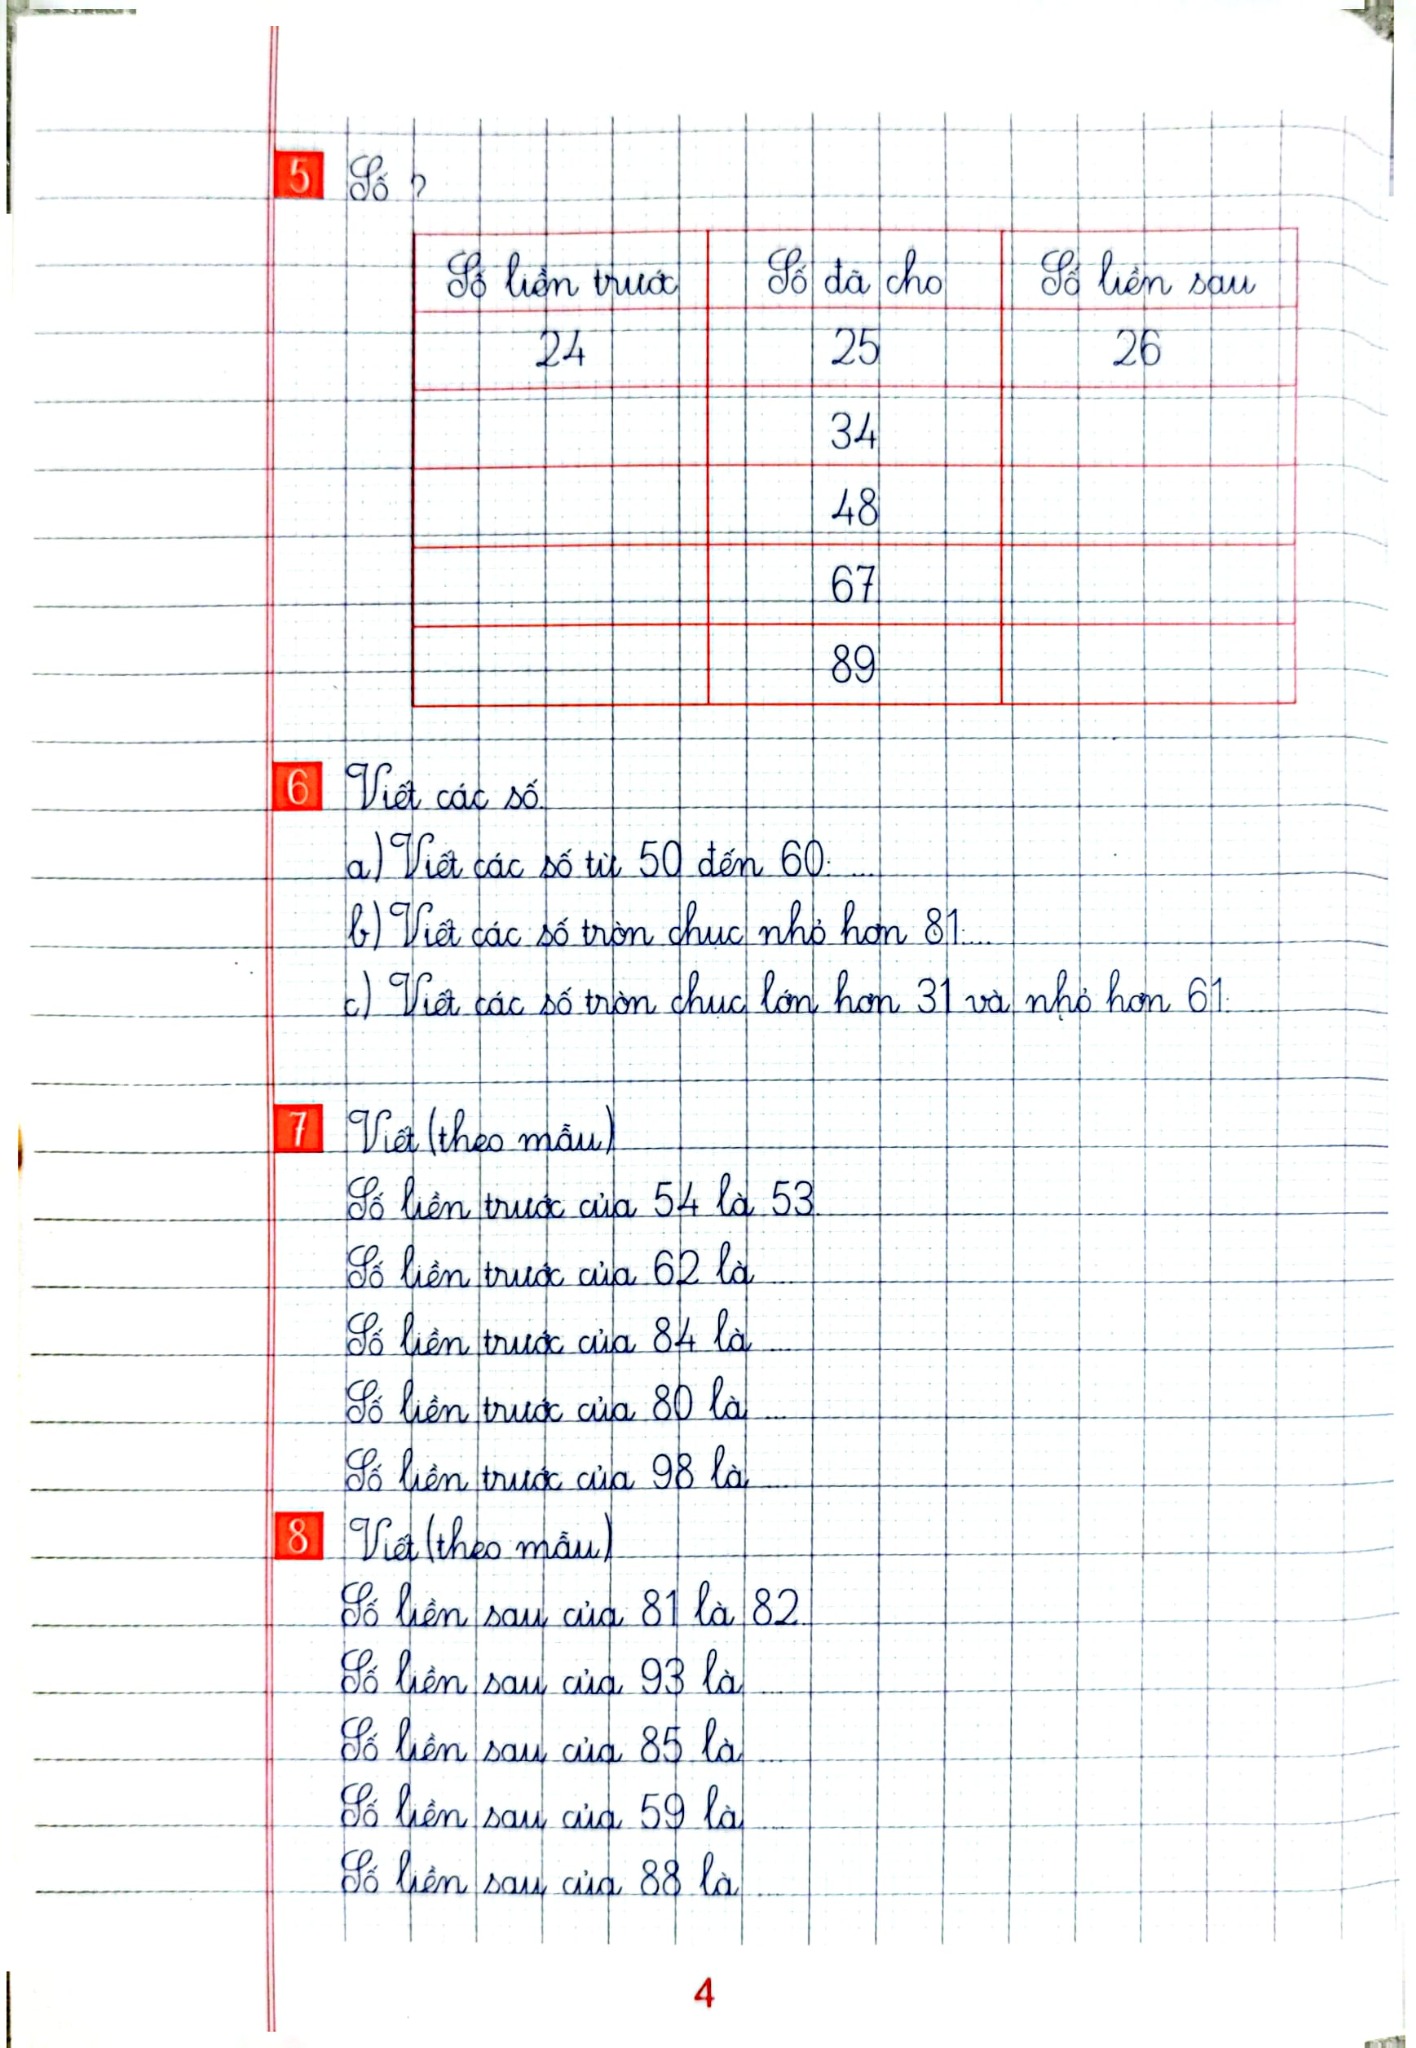 5 Số ?
Số liền trước Số đã cho Số liền sau
24 25 26
34
48
67
89
6 Viết các số
a) Viết các số từ 50 đến 60:....
b) Viết các số tròn chục nhỏ hơn 81:....
c) Viết các số tròn chục lớn hơn 31 và nhỏ hơn 61:....
7 Viết (theo mẫu)
Số liền trước của 54 là 53
Số liền trước của 62 là ....
Số liền trước của 84 là ....
Số liền trước của 80 là ....
Số liền trước của 98 là ....
8 Viết (theo mẫu)
Số liền sau của 81 là 82
Số liền sau của 93 là ....
Số liền sau của 85 là ....
Số liền sau của 59 là ....
Số liền sau của 88 là ....
4